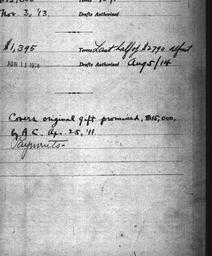 Nov. 3, '13. Drafts Authorized
$1,395 Terms Last half of $2790
JUN 12 1914 Drafts Authorized Aug 5/14
Covers original gift promised, $15,000,
by A.C. Ap. 25, '11.
Payments-